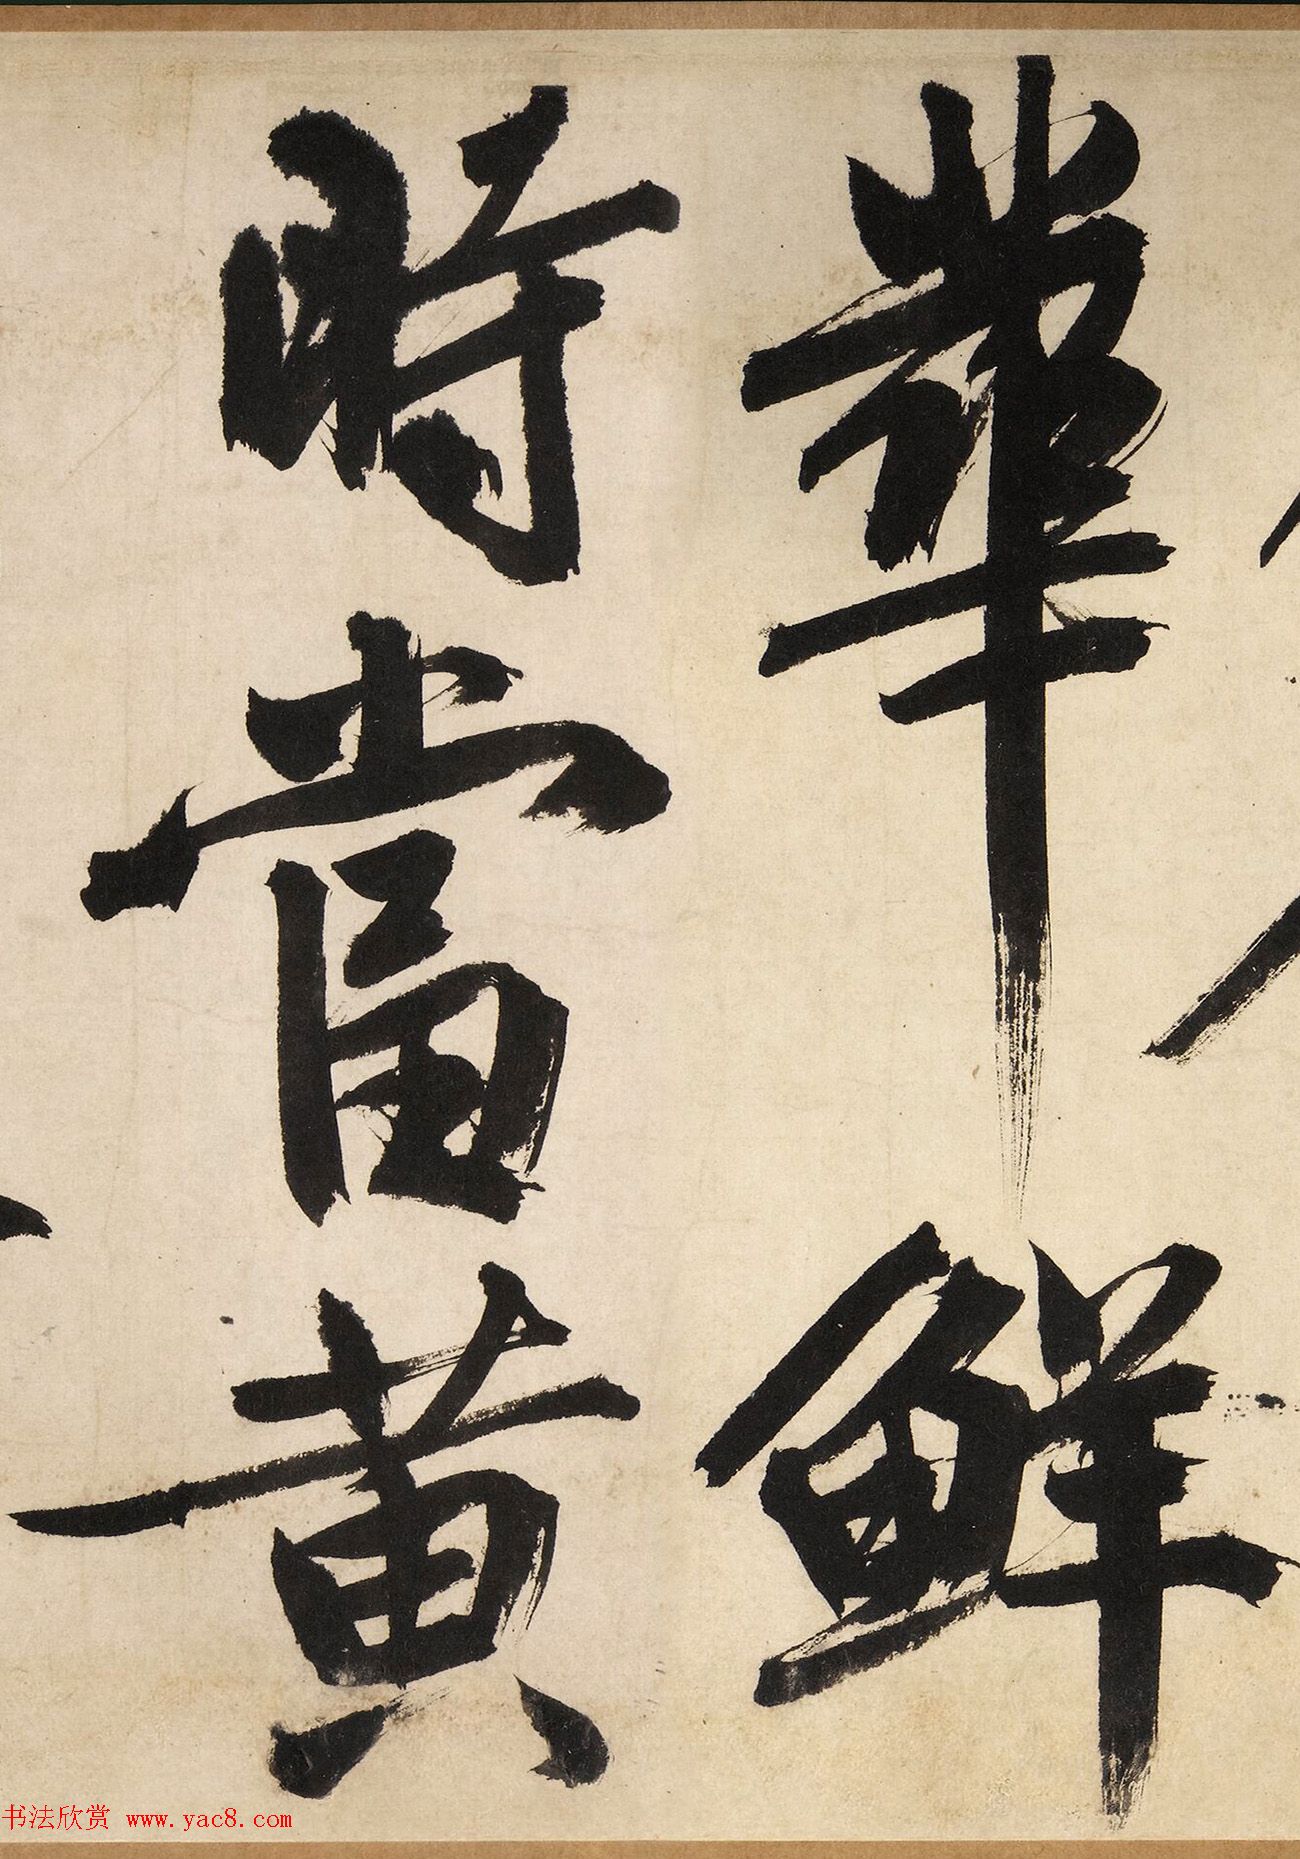 華鮮
時當黄
书法欣赏 www.yac8.com